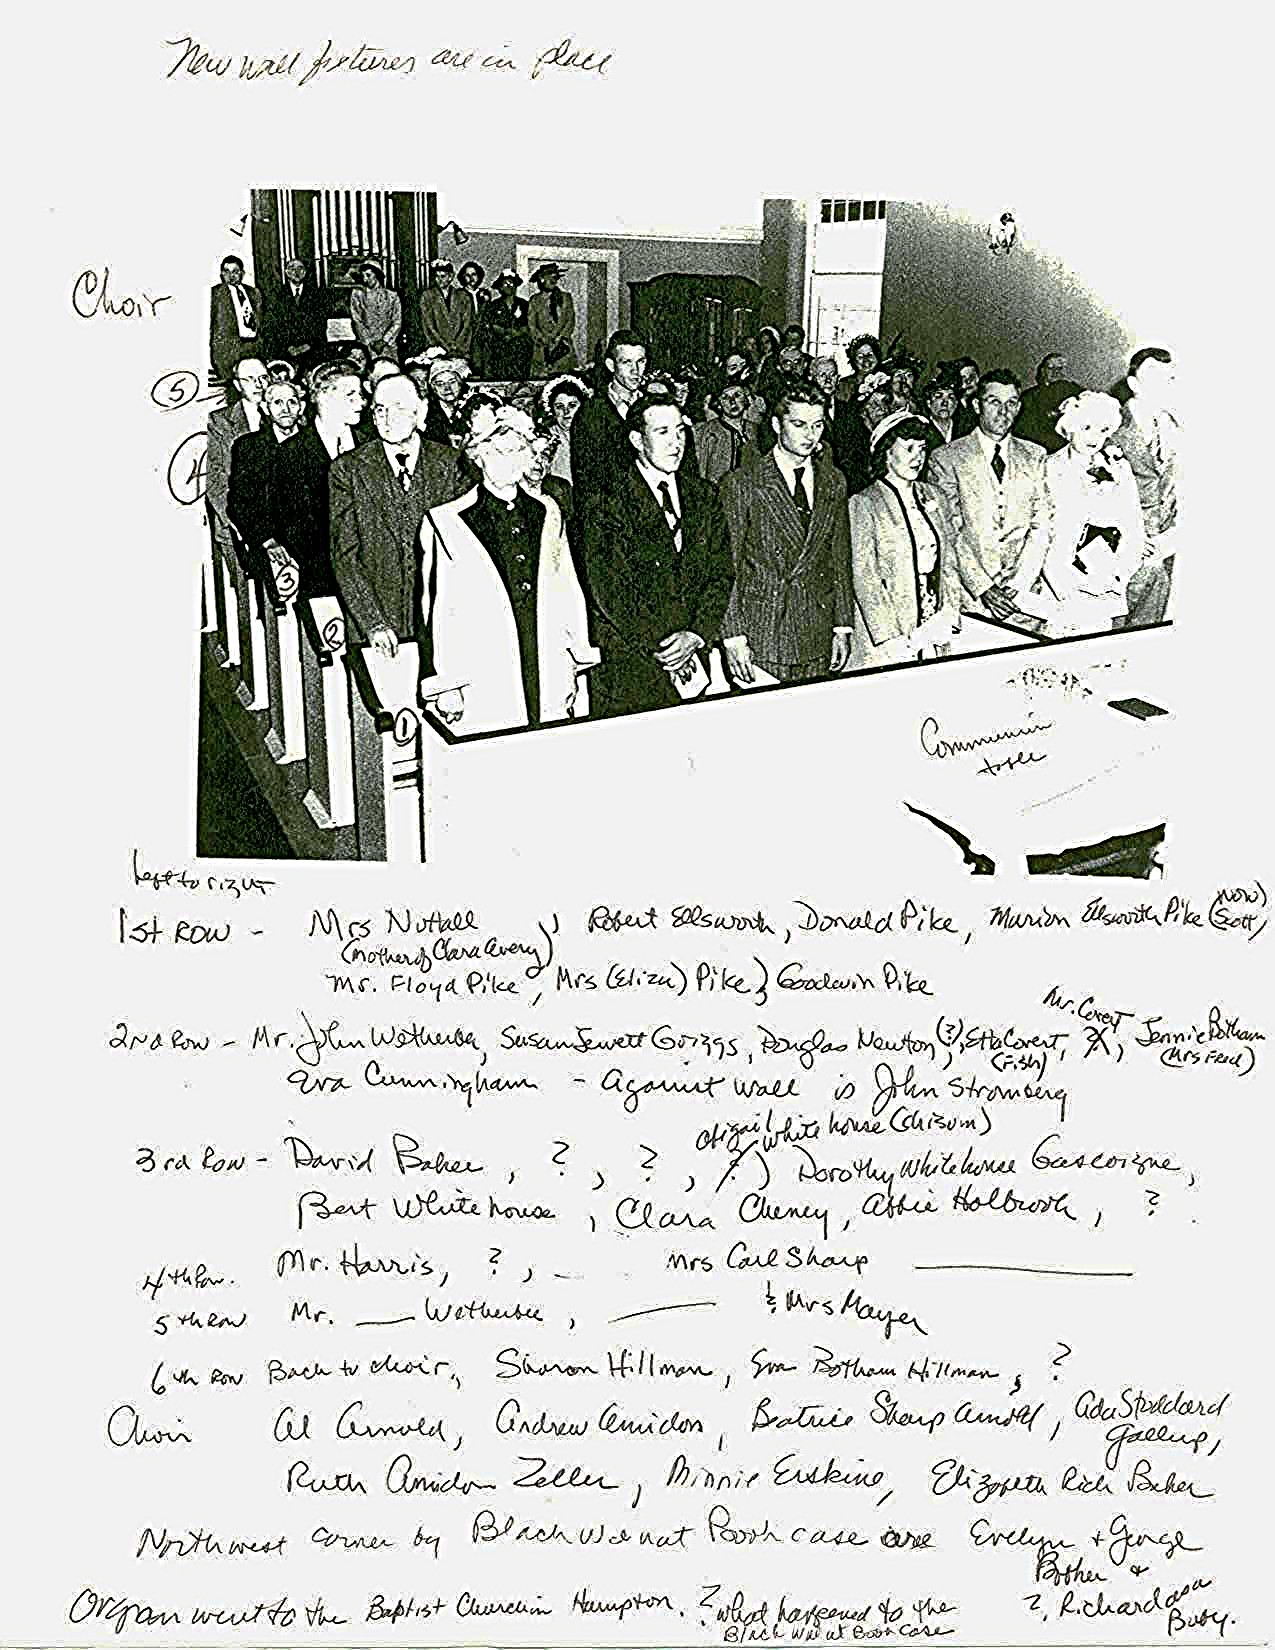 New wall fixtures are in place
Choir
5
4
3
2
1
Communion
table
Left to right
1st Row - Mrs Nuttall, Robert Ellsworth, Donald Pike, Marion Ellsworth Pike (now Scott),
(Mother of Clara Avery)
Mr. Floyd Pike, Mrs (Eliza) Pike, Goodwin Pike
Mr. Covert
2nd Row - Mr. John Wetherbee, Susan Jewett Griggs, Douglas Newton (?), Etta Covert, ?, Jennie Botham
(Fish) (Mrs Fred)
Eva Cunningham - Against wall is John Stromberg
Abigail Whitehouse (Chisum)
3rd Row - David Baker, ?, ?, ?, Dorothy Whitehouse Gascoigne,
Bert Whitehouse, Clara Cheney, Abbie Holbrook, ?
4th Row. Mr. Harris, ?, Mrs Carl Sharp
5th Row Mr. ___ Wetherbee, ___ & Mrs Mayer
6th Row Back to choir, Sharon Hillman, Eva Botham Hillman, ?
Choir Al Arnold, Andrew Amidon, Beatrice Sharp Arnold, Ada Stoddard
Gallup,
Ruth Amidon Zeller, Minnie Erskine, Elizabeth Rich Baker
Northwest corner by Black Walnut Book case are Evelyn + George
&
?, Richardson
Baby.
Organ went to the Baptist Church in Hampton. ? what happened to the
Black Walnut Book Case